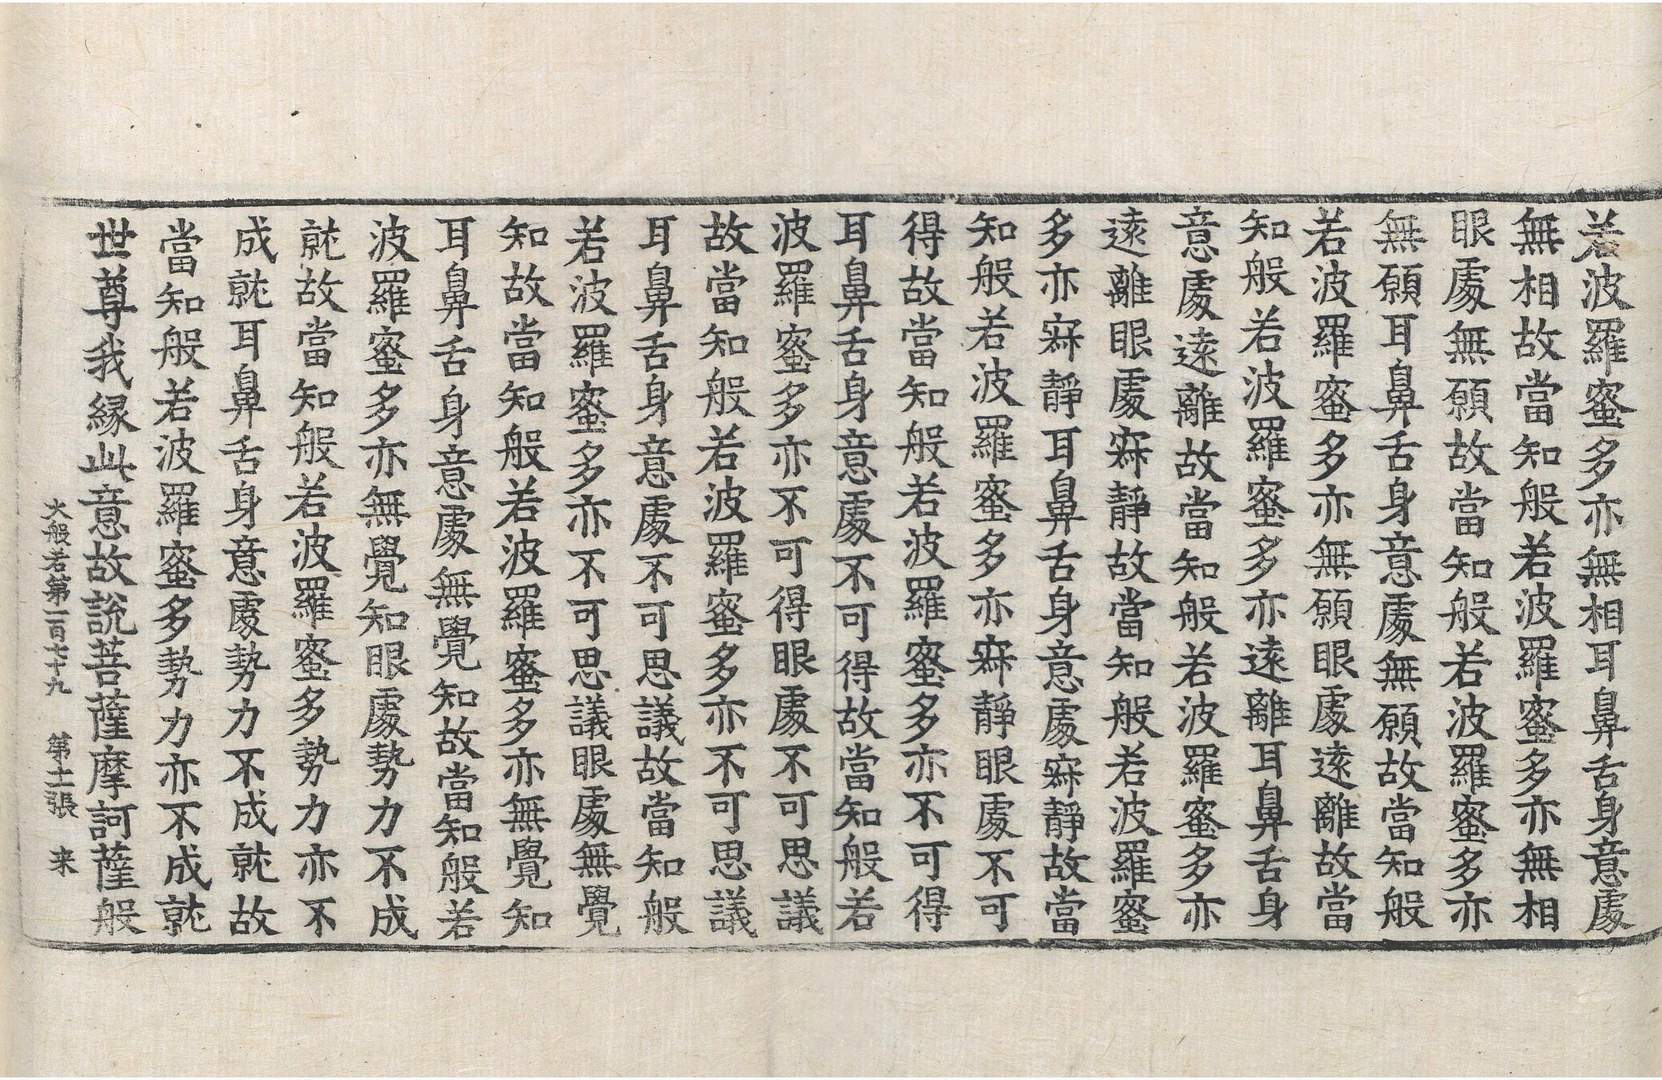 若波羅蜜多亦無相耳鼻舌身意處
無相故當知般若波羅蜜多亦無相
眼處無願故當知般若波羅蜜多亦
無願耳鼻舌身意處無願故當知般
若波羅蜜多亦無願眼處遠離故當
知般若波羅蜜多亦遠離耳鼻舌身
意處遠離故當知般若波羅蜜多亦
遠離眼處寂靜故當知般若波羅蜜
多亦寂靜耳鼻舌身意處寂靜故當
知般若波羅蜜多亦寂靜眼處不可
得故當知般若波羅蜜多亦不可得
耳鼻舌身意處不可得故當知般若
波羅蜜多亦不可得眼處不可思議
故當知般若波羅蜜多亦不可思議
耳鼻舌身意處不可思議故當知般
若波羅蜜多亦不可思議眼處無覺
知故當知般若波羅蜜多亦無覺知
耳鼻舌身意處無覺知故當知般若
波羅蜜多亦無覺知眼處勢力不成
就故當知般若波羅蜜多勢力亦不
成就耳鼻舌身意處勢力不成就故
當知般若波羅蜜多勢力亦不成就
世尊我緣此意故說菩薩摩訶薩般
大般若第一百七十九 第十二張 来